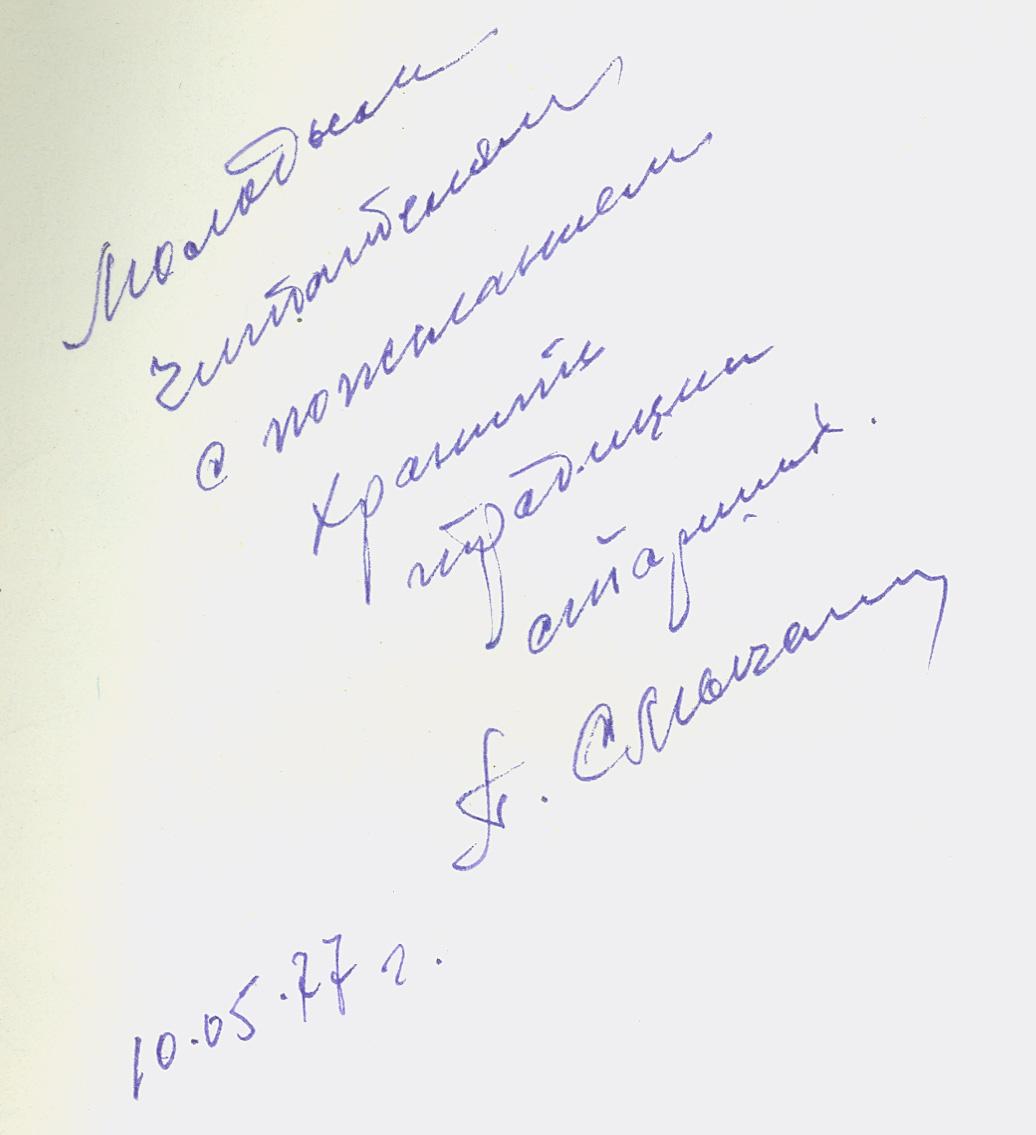 Молодым
читателям
с пожеланием
хранить
традиции
старших.
10.05.77 г.